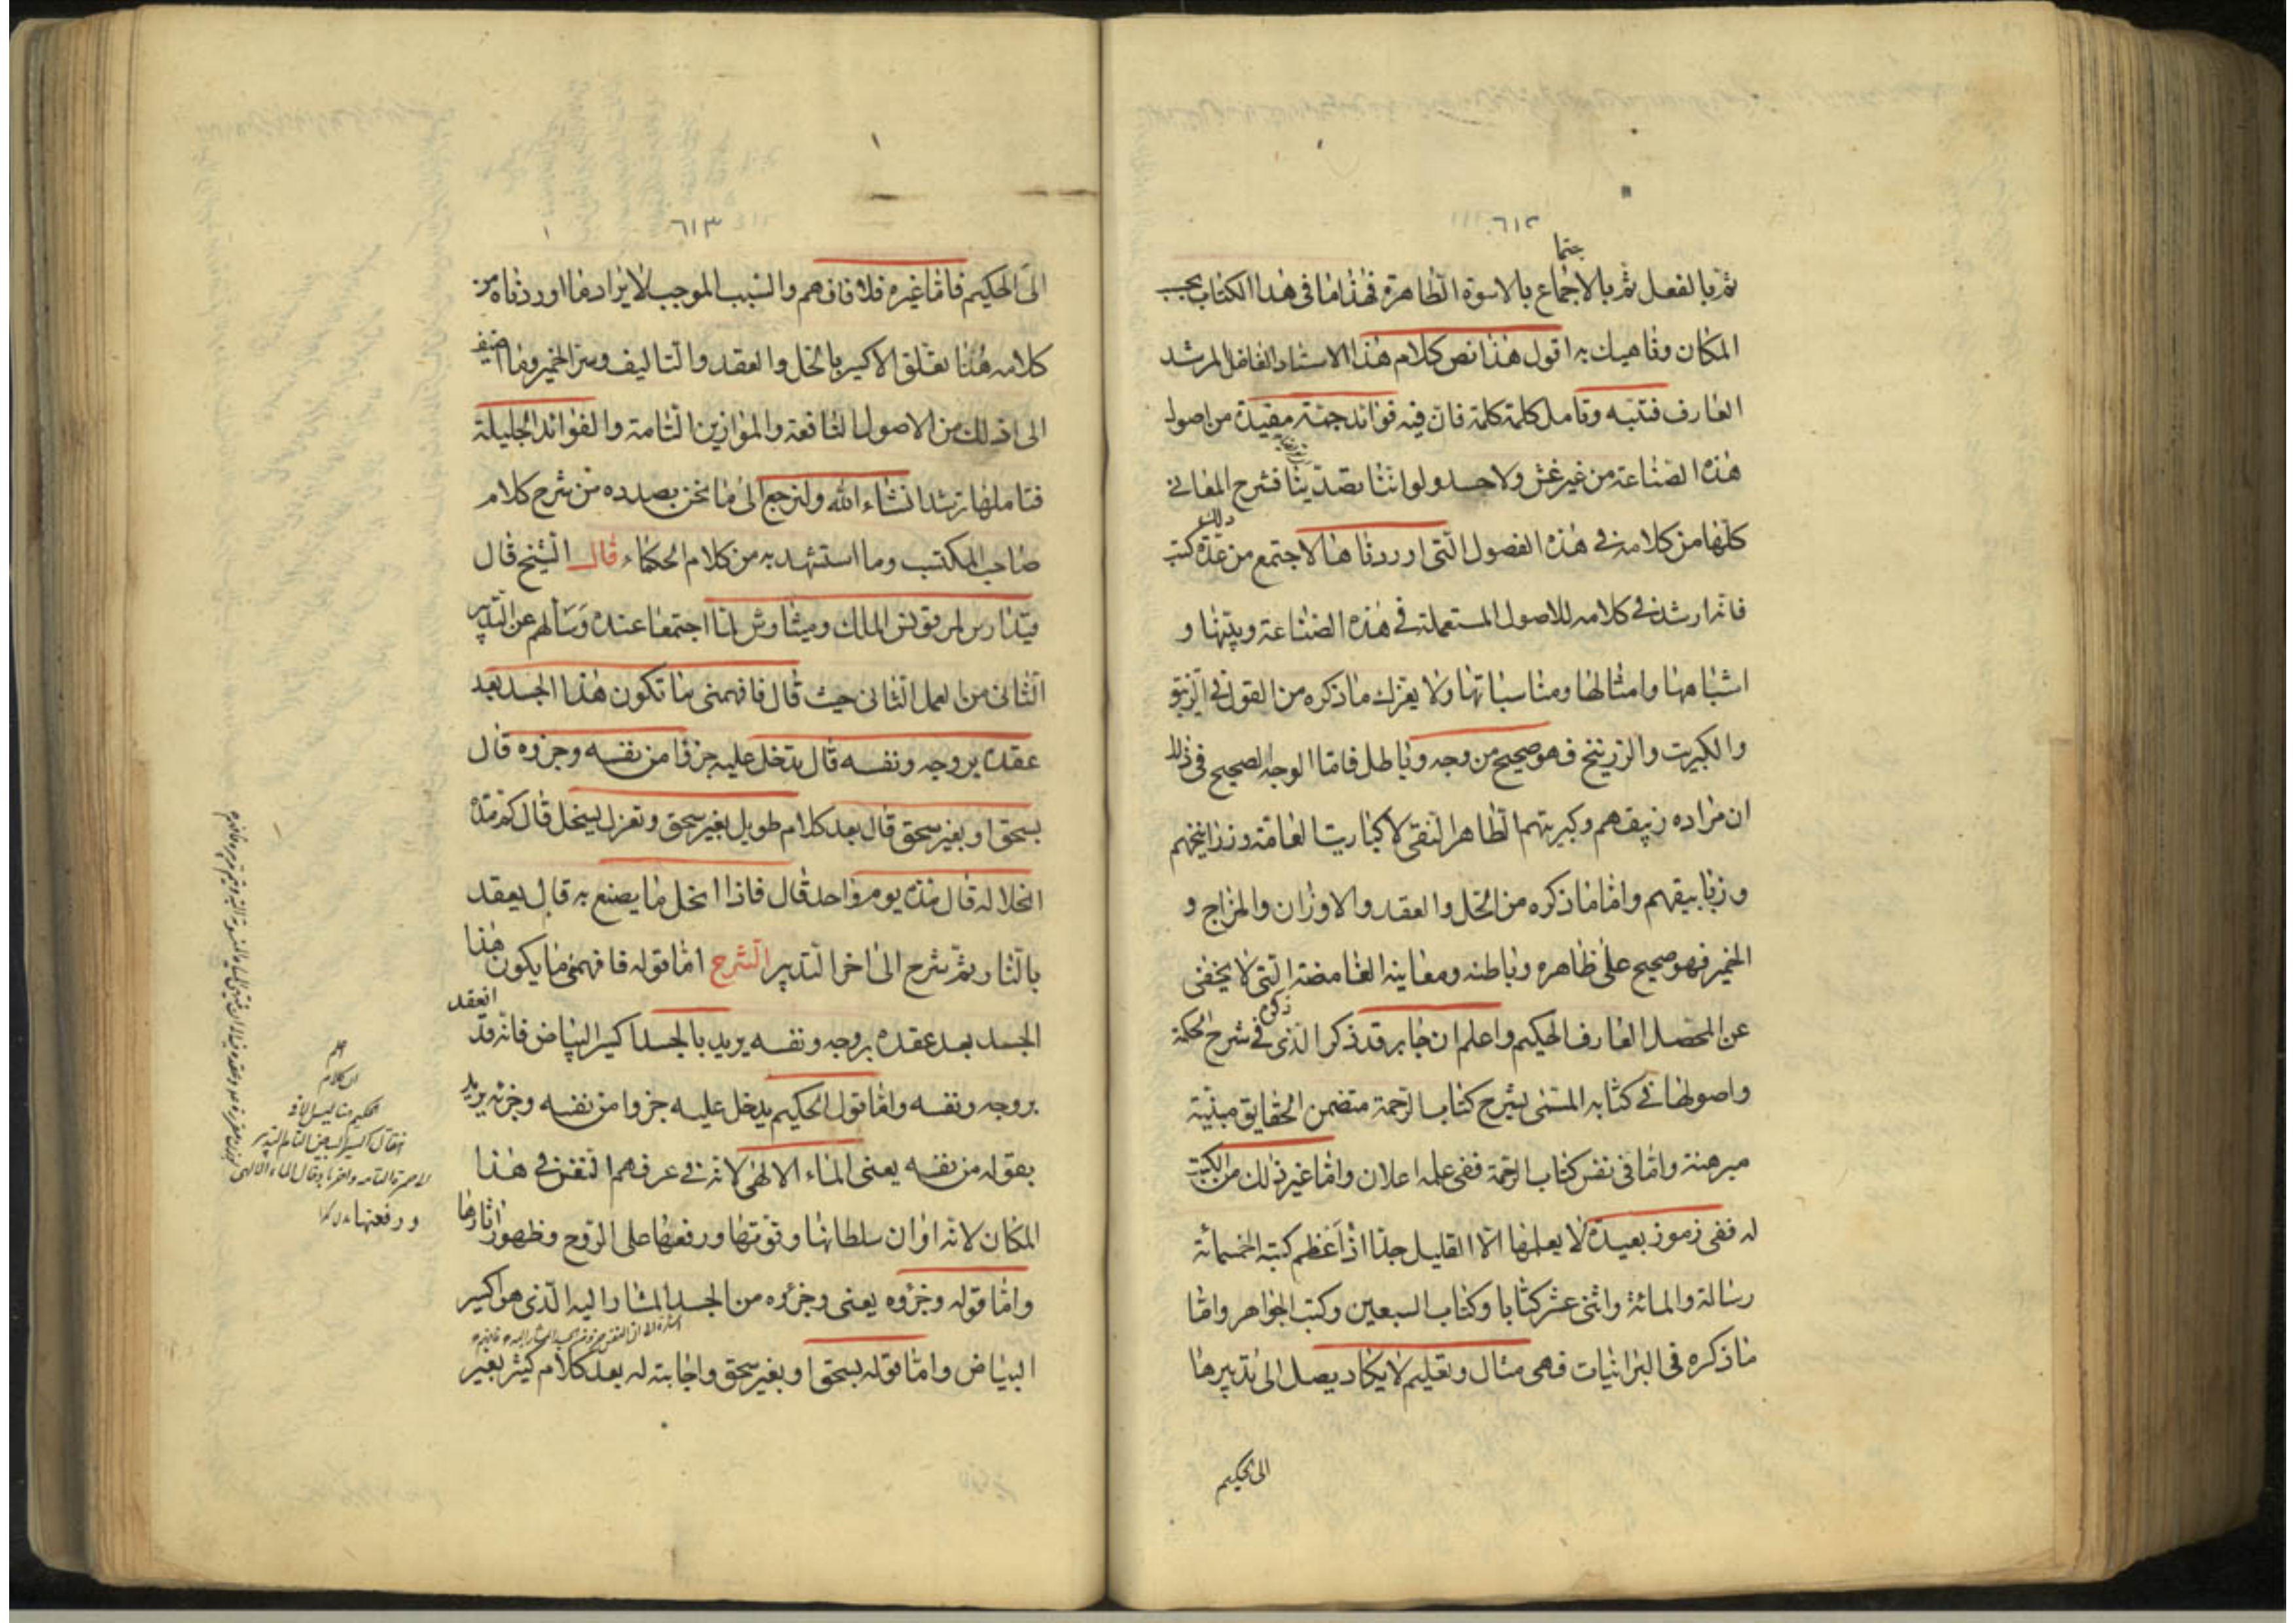 ٦١٢
ثم بالفعل ثم بالاجماع بالاسوة الظاهرة فهذا ما فى هذا الكتاب بحسب
المكان وناهيك به اقول هذا نص كلام هذا الاستاد الفاضل المرشد
العارف فتنبه وتامل كلمة كلمة فان فيه فوائد جمة مفيدة من اصول
هذه الصناعة من غير غش ولا حسد ولو اننا تصدينا فشرح المعانى
كلها من كلامه فى هذه الفصول التى اوردناها لاجتمع من ذلك عدة كتب
فانه ارشد فى كلامه للاصول المستعملة فى هذه الصناعة وبينها و
اشباهها وامثالها ومناسباتها ولا يغرك ما ذكره من القول فى الزيبق
والكبريت والزرنيخ فهو صحيح من وجه وباطل فاما الوجه الصحيح فى ذلك
ان مراده زيبقهم وكبريتهم الطاهر النقى لا كباريت العامة وزرانيخهم
وزيابيقهم واما ما ذكره من الحل والعقد والاوزان والمزاج و
الخمير فهو صحيح على ظاهره وباطنه ومعانيه الغامضة التى لا يخفى
عن المحصل العارف الحكيم واعلم ان جابر قد ذكر الذى فى شرح الحكمة
واصولها فى كتابه المسمى بشرح كتاب الرحمة متضمن الحقايق مبنية
مبرهنة واما فى نفس كتاب الرحمة ففى علمه اعلان واما غير ذلك من الكتب
له ففى رموز بعيدة لا يعلمها الا القليل جدا اذ اعظم كتبه الخمسمائة
رسالة والمائة واثنى عشر كتابا وكتاب السبعين وكتب الجواهر واما
ما ذكره فى البرانيات فهى مثال وتعليم لا يكاد يصل الى تدبيرها
الى الحكيم
٦١٣
الى الحكيم فاما غيره فلا فافهم والسبب الموجب لايراد ما اوردناه من
كلامه هنا تعلق الاكسير بالحل والعقد والتاليف وسر الخمير وما اضيف
الى ذلك من الاصول النافعة والموازين التامة والفوائد الجليلة
فتاملها ترشد انشاء الله ولنرجع الى ما نحن بصدده من شرح كلام
صاحب المكتسب وما استشهد به من كلام الحكماء قال الشيخ قال
قيدارس لمرقونس الملك وميثاوش لما اجتمعا عنده وسالهم عن التدبير
الثانى من العمل الثانى حيث قال فافهمنى ما تكون هذا الجسد بعد
عقده بروحه ونفسه قال تدخل عليه جزوا من نفسه وجزوه قال
بسحق او بغير سحق قال بعد كلام طويل بغير سحق وتعزل لينحل قال كم مدة
انحلاله قال مدة يوم واحد قال فاذا انحل ما يصنع به قال يعقد
بالنار ثم شرح الى اخر التدبير الشرح اما قوله فافهمنى ما يكون هذا
الجسد بعد عقده بروحه ونفسه يريد بالجسد اكسير البياض فانه قد انعقد
بروحه ونفسه واما قول الحكيم يدخل عليه جزوا من نفسه وجزئه يريد
بقوله من نفسه يعنى الماء الالهى لانه فى عرفهم النفس فى هذا
المكان لانه اوان سلطانها وقوتها ورفعها على الروح وظهور اثارها
واما قوله وجزوه يعنى وجزؤه من الجسد المشار اليه الذى هو اكسير
البياض واما قوله بسحق او بغير سحق واجابته له بعد كلام كثير بغير